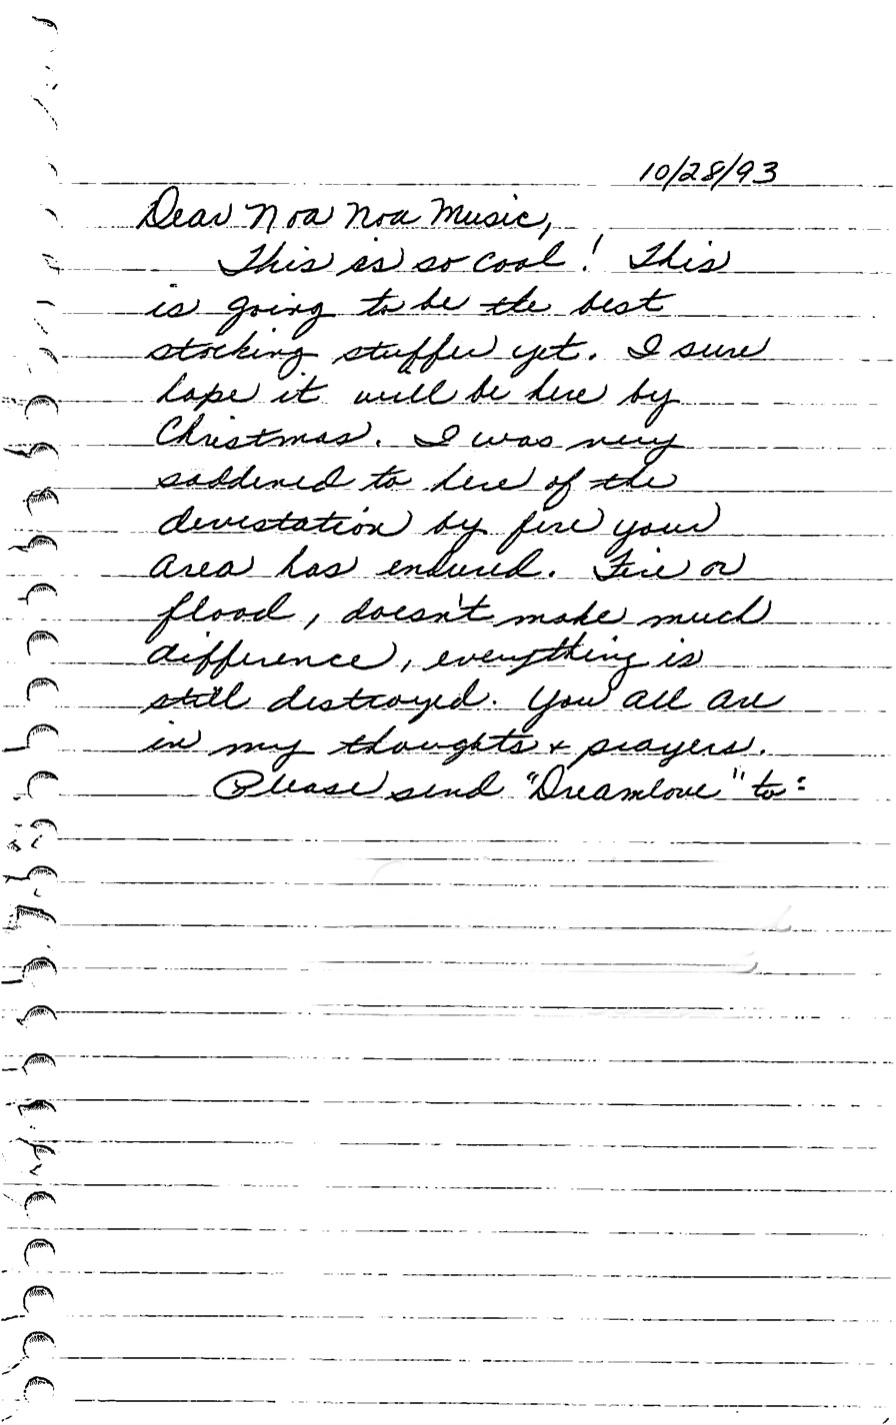 10/28/93
Dear Noa Noa Music,
This is so cool! This
is going to be the best
stocking stuffer yet. I sure
hope it will be here by
Christmas. I was very
saddened to here of the
devestation by fire your
area has endured. Fire or
flood, doesn't make much
difference, everything is
still destroyed. You all are
in my thoughts + prayers.
Please send "Dreamlove" to: